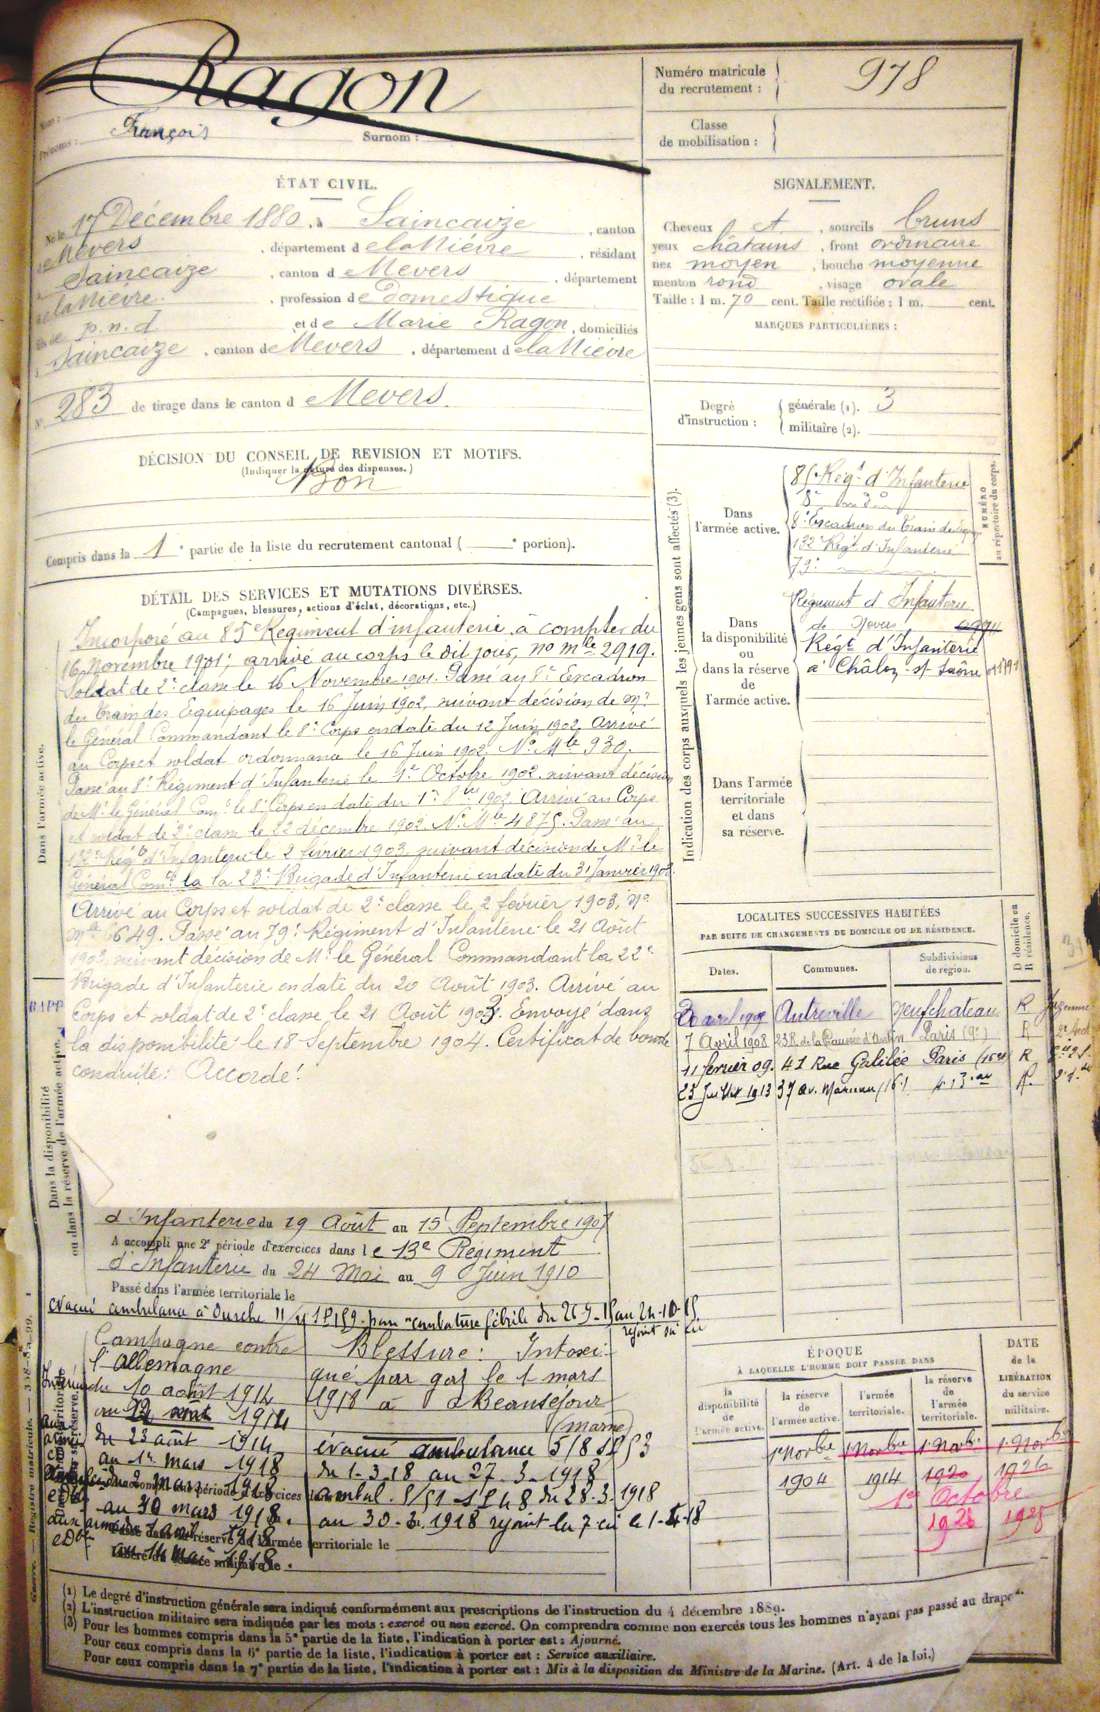 Ragon
Nom :
Prénoms : François Surnom :
Numéro matricule du recrutement : 978
Classe de mobilisation :
ÉTAT CIVIL.
Né le 17 Décembre 1880, à Saincaize, canton
de Nevers, département de la Nièvre, résidant
à Saincaize, canton de Nevers, département
de la Nièvre, profession de Domestique
fils de p.n.d. et de Marie Ragon, domiciliés
à Saincaize, canton de Nevers, département de la Nièvre
N° 283 de tirage dans le canton d Nevers.
SIGNALEMENT.
Cheveux et, sourcils bruns
yeux châtains, front ordinaire
nez moyen, bouche moyenne
menton rond, visage ovale
Taille : 1 m. 70 cent. Taille rectifiée : 1 m. cent.
MARQUES PARTICULIÈRES :
Degré d'instruction : générale (1). 3
militaire (2).
DÉCISION DU CONSEIL DE REVISION ET MOTIFS.
(Indiquer la nature des dispenses.)
Bon
Compris dans la 1e partie de la liste du recrutement cantonal ( e portion).
DÉTAIL DES SERVICES ET MUTATIONS DIVERSES.
(Campagnes, blessures, actions d'éclat, décorations, etc.)
Dans l'armée active.
Incorporé au 85e Régiment d'infanterie à compter du
16 Novembre 1901; arrivé au corps le dit jour, no mle 2919.
Soldat de 2e classe le 16 Novembre 1901. Passé au 8e Escadron
du Train des Equipages le 16 Juin 1902, suivant décision de Mr
le Général Commandant le 8e Corps en date du 12 Juin 1902. Arrivé
au Corps et soldat ordonnance le 16 Juin 1902. No Mle 930.
Passé au 8e Régiment d'Infanterie le 1er Octobre 1902, suivant décision
de Mr le Général Comt le 8e Corps en date du 1er 8bre 1902. Arrivé au Corps
et soldat de 2e classe le 22 décembre 1902. No Mle 4875. Passé au
132e Régt d'Infanterie le 2 février 1903 suivant décision de Mr le
Général Comt la 23e Brigade d'Infanterie en date du 31 Janvier 1903.
Arrivé au Corps et soldat de 2e classe le 2 février 1903, No
Mle 6649. Passé au 79e Régiment d'Infanterie le 21 Août
1903, suivant décision de Mr le Général Commandant la 22e
Brigade d'Infanterie en date du 20 Août 1903. Arrivé au
Corps et soldat de 2e classe le 21 Août 1903. Envoyé dans
la disponibilité le 18 Septembre 1904. Certificat de bonne
conduite: Accordé.
Dans la disponibilité ou dans la réserve de l'armée active.
d'Infanterie du 19 Août au 15 Septembre 1907
A accompli une 2e période d'exercices dans le 13e Régiment
d'Infanterie du 24 Mai au 9 Juin 1910
Passé dans l'armée territoriale le
Campagne contre
l'Allemagne
du 10 août 1914
1914
du 23 août 1914
au 1er mars 1918
du 2 mars 1918
au 30 mars 1918.
1918
1918.
Blessure: Intoxi
qué par gaz le 1 mars
1918 à Beauséjour
(Marne)
évacué ambulance 5/8 SP 53
du 1-3-18 au 27-3-1918
ambul. 5/51 SP 48 du 28-3-1918
au 30-3-1918 rejoint la 7 cie le 1-4-18
Indication des corps auxquels les jeunes gens sont affectés (3).
NUMÉRO au répertoire du corps.
Dans l'armée active.
85e Régt d'Infanterie
8e
8e Escadron du Train des Eq
132e Régt d'Infanterie
79e
Dans la disponibilité ou dans la réserve de l'armée active.
Régiment d'Infanterie
de
Régt d'Infanterie
à Châlon s/ Saône
Dans l'armée territoriale et dans sa réserve.
LOCALITÉS SUCCESSIVES HABITÉES
PAR SUITE DE CHANGEMENTS DE DOMICILE OU DE RÉSIDENCE.
Dates. Communes. Subdivisions de région. D domicile ou R résidence.
Autreville Neufchateau R
7 Avril 1908 23 R. de la Chaussée d'Antin Paris (9e) R
11 février 09. 41 Rue Galilée Paris (16e) R
23 Juillet 1913 37 av. Marceau (16e) R.
ÉPOQUE
À LAQUELLE L'HOMME DOIT PASSER DANS
la disponibilité de l'armée active.
la réserve de l'armée active.
l'armée territoriale.
la réserve de l'armée territoriale.
DATE de la LIBÉRATION du service militaire.
1er Novbre 1er Novbre 1er Novbre 1er Novbre
1904 1914 1920 1926
1er Octobre
(1) Le degré d'instruction générale sera indiqué conformément aux prescriptions de l'instruction du 4 décembre 1889.
(2) L'instruction militaire sera indiquée par les mots : exercé ou non exercé. On comprendra comme non exercés tous les hommes n'ayant pas passé au drapeau.
(3) Pour les hommes compris dans la 5e partie de la liste, l'indication à porter est : Ajourné.
Pour ceux compris dans la 6e partie de la liste, l'indication à porter est : Service auxiliaire.
Pour ceux compris dans la 7e partie de la liste, l'indication à porter est : Mis à la disposition du Ministre de la Marine. (Art. 4 de la loi.)